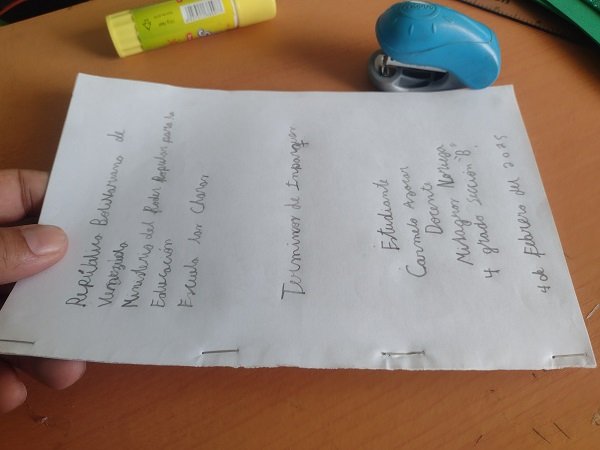 República Bolivariana de
Venezuela
Ministerio del Poder Popular para la
Educación
Escuela Los Claros
Terminos de
Estudiante
Carmelo Azocar
Docente
Milagros Noriega
4 grado sección "B"
4 de Febrero del 2025